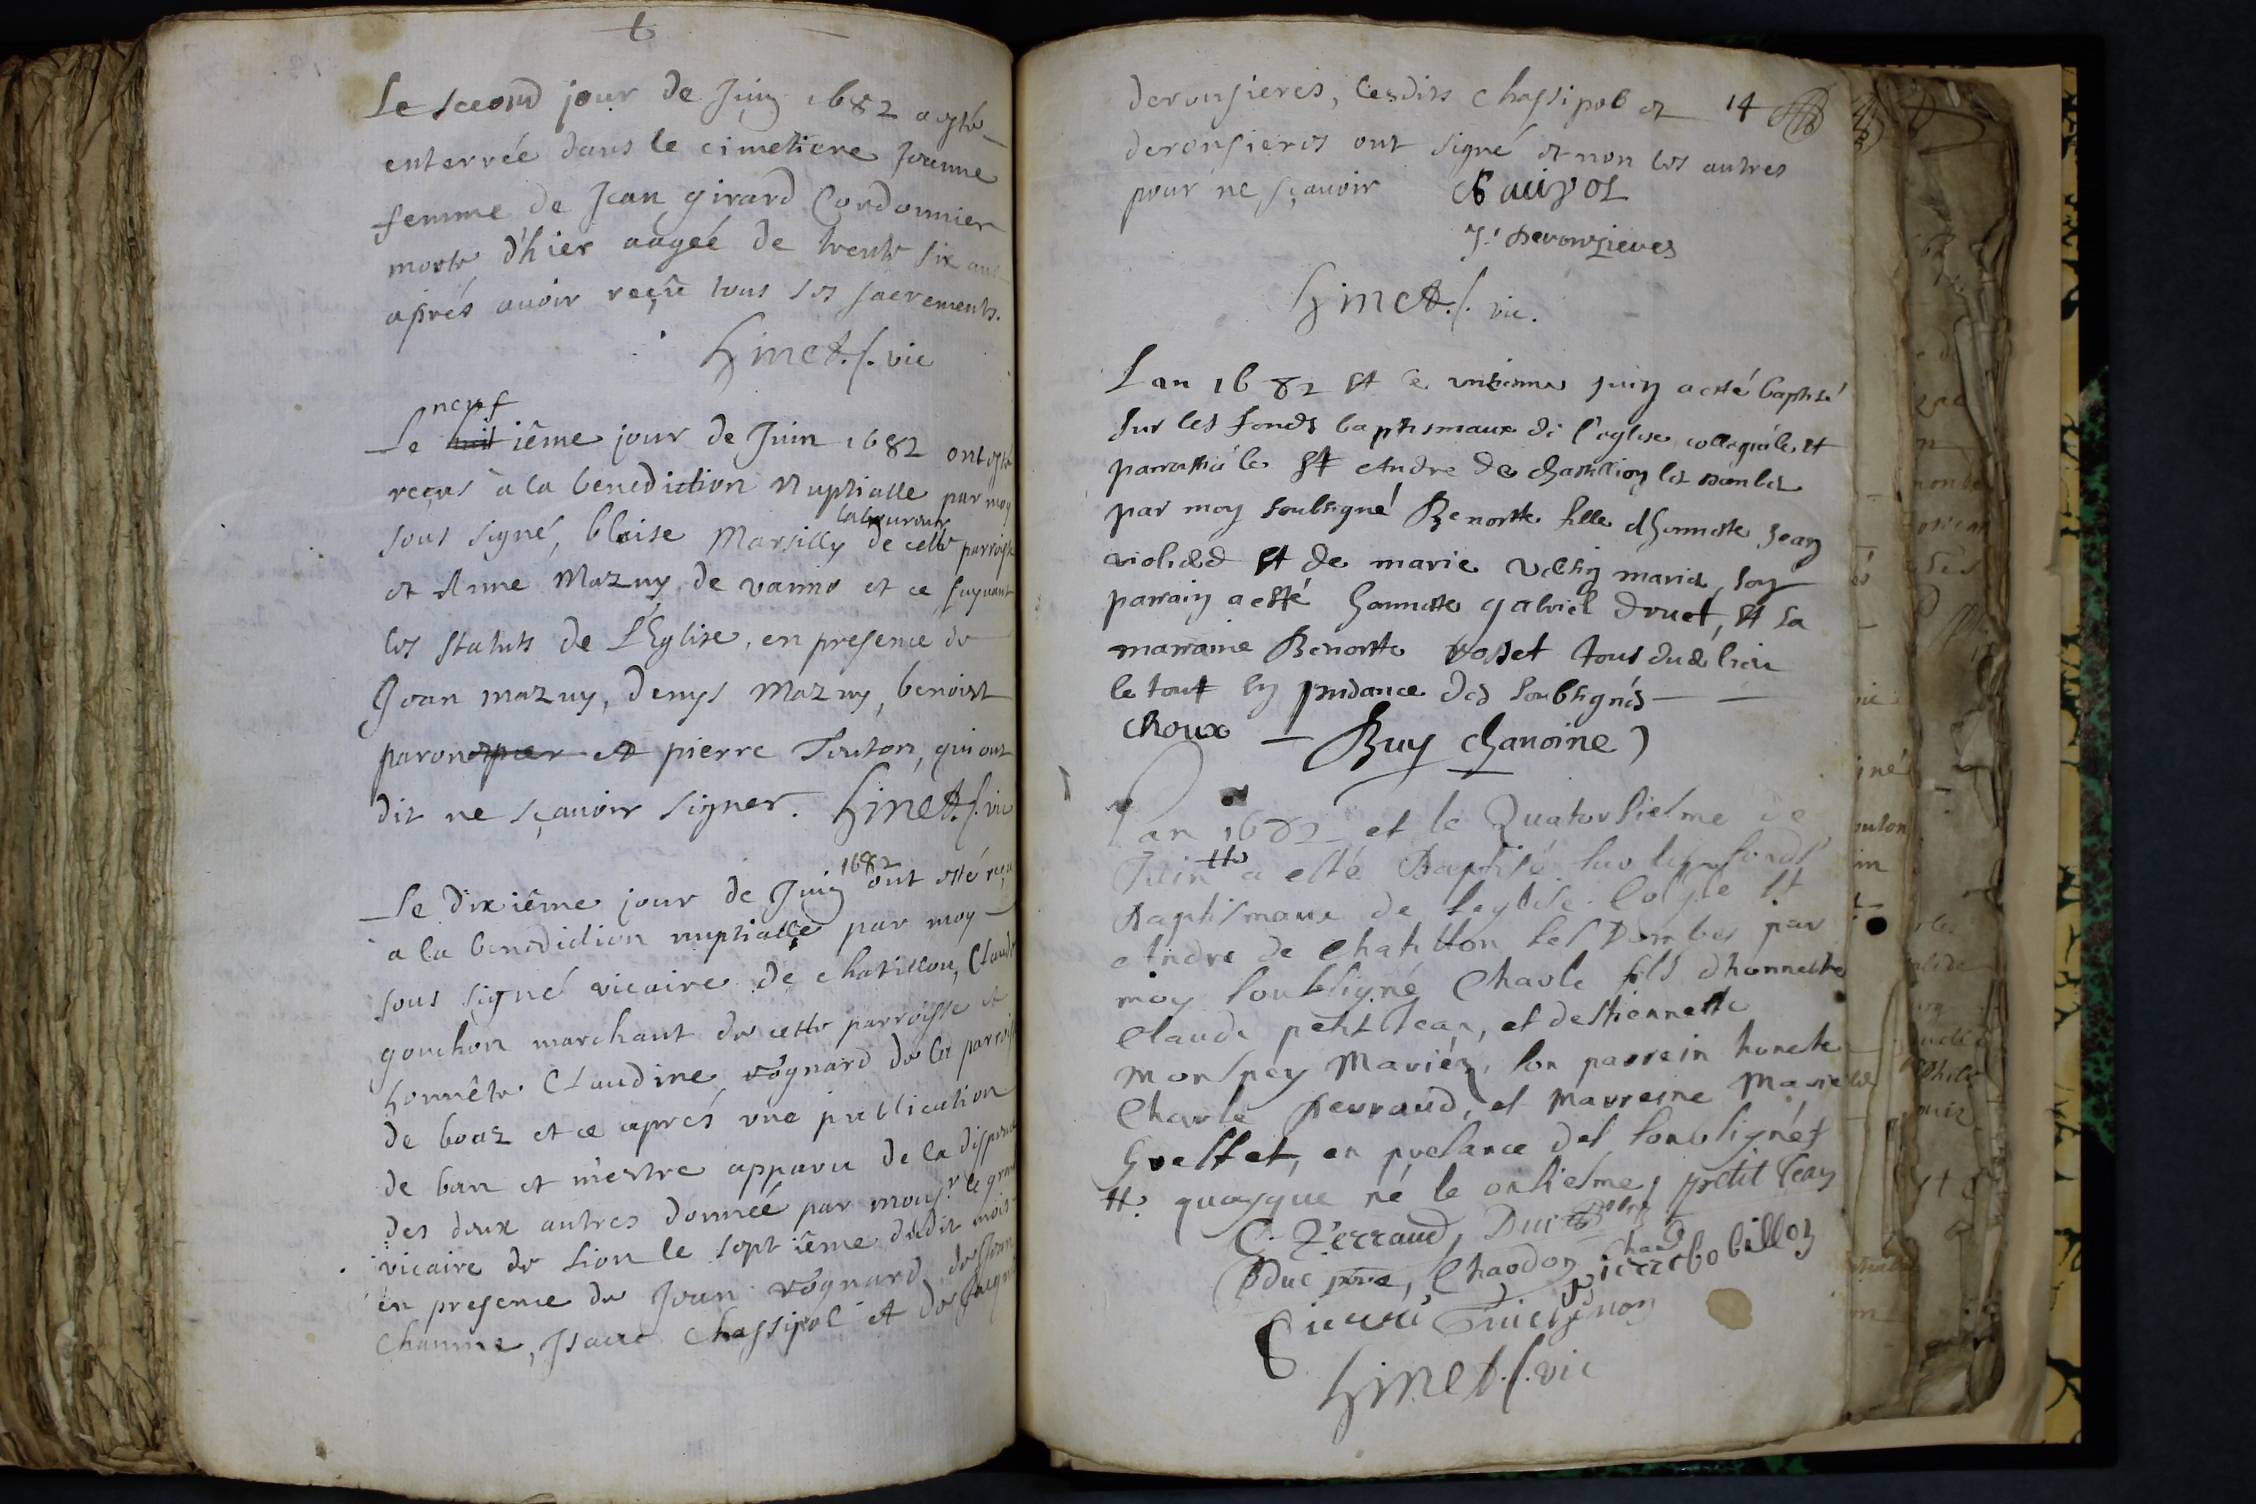 t
Le second jour de Juin 1682 a esté
enterrée dans le cimetiere Jeanne
femme de Jean girard Cordonnier
morte d'hier aagée de trente six ans
aprés avoir reçû tous les sacrements.
f. vic
neuf
Le huit iême jour de Juin 1682 ont esté
reçus à la benediction Nuptialle par moy
laboureur
sous signé, blaise Marsilly de cette parroisse
et Anne Mazuy de et ce suyvant
les statuts de L'Église, en presence de
Jean mazuy, denys Mazuy, benoist
paron et pierre Touton, qui ont
dit ne sçavoir signer. f. vic
1682
Le dixiême jour de Juin ont esté reçu
a la benediction nuptialle par moy
sous signé vicaire de chatillon, Claude
gonchon marchant de cette parroisse et
honnête Claudine rognard de la parroisse
de et ce aprés une publication
de ban et m'estre apparu de la dispense
des deux autres donnée par monsr. le grand
vicaire de Lion le septiême dudit mois
en presence de Jean rognard, de Jean
Chanine, Isaac Chassipol et de
deronsieres, lesdits Chassipol et 14
deronsieres ont signé et non les autres
pour ne sçavoir
J. Deronzieres
f. vic.
Lan 1682 et le juin a esté baptisé
sur les fonds baptismaux de l'eglise collegiale et
parrossiale St Andre de chastillion les dombes
par moy soubsigné Benoitte fille dhonneste Jean
violied et de marie mariés, son
parrain a esté honneste gabriel druet, et sa
marraine Benoitte rosset tous dud lieu
le tout en des soubsignés
choux Buy chanoine
Lan 1682 et le Quatorsiesme de
Juin a esté Baptisé sur les fonds
Baptismaux de leglise St
Andre de Chatillon les Dombes par
moy soubsigné Charle fils dhonneste
Claude petit Jean, et destiennette
Monspey Mariés, son parrein honeste
Charle Perraud, et Marreine Marie
Greffet, en presance des soubsignés
quoyque né le onsiesme, petit Jean
C. Perraud, Duc
Duc Chaodon pierre bobillon
f. vic